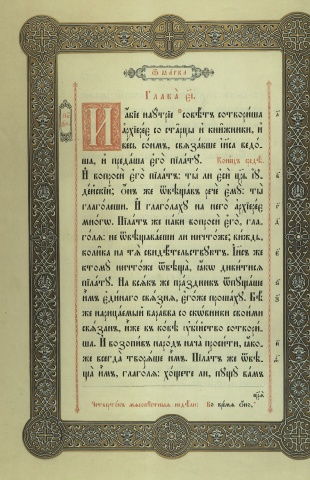 Ѿ МАРКА
Глава̀ є҃і.
И а҆́бїе наꙋ́трїе совѣ́тъ сотвори́ша
а҆рхїерє́е со ста̑рцы и҆ кни̑жники, и҆
ве́сь со́нмъ, свѧза́вше і҆и҃са ведо́-
ша, и҆ преда́ша є҆го̀ пїла́тꙋ. Коне́цъ
И҆ вопросѝ є҆го̀ пїла́тъ: ты́ ли є҆сѝ цр҃ь і҆ꙋ-
де́йскїй; Ѻ҆́нъ же ѿвѣща́въ речѐ є҆мꙋ̀: ты̀
глаго́леши. И҆ глаго́лахꙋ на него̀ а҆рхїерє́е
мно́гѡ. Пїла́тъ же па́ки вопросѝ є҆го̀, гла-
го́лѧ: не ѿвѣщава́еши ли ничто́же; ви́ждь,
коли̑ка на тѧ̀ свидѣ́тельствꙋютъ. І҆и҃съ же
ктомꙋ̀ ничто́же ѿвѣща̀, ꙗ҆́кѡ диви́тисѧ
пїла́тꙋ. На всѧ́къ же пра́здникъ ѿпꙋща́ше
и҆̀мъ є҆ди́наго свѧ́знѧ, є҆го́же проша́хꙋ. Бѣ́
же нарица́емый вара́вва со ско́вники свои́ми
свѧ́занъ, и҆̀же въ ко́вѣ ᲂу҆бі́йство сотвори́-
ша. И҆ возопи́въ наро́дъ нача̀ проси́ти, ꙗ҆́ко-
же всегда̀ творѧ́ше и҆̀мъ. Пїла́тъ же ѿвѣ-
ща̀ и҆̀мъ, глаго́лѧ: хо́щете ли, пꙋщꙋ̀ ва́мъ
Четверто́къ мѧсопꙋ́стныѧ недѣ́ли: Во вре́мѧ ѻ҆́но,